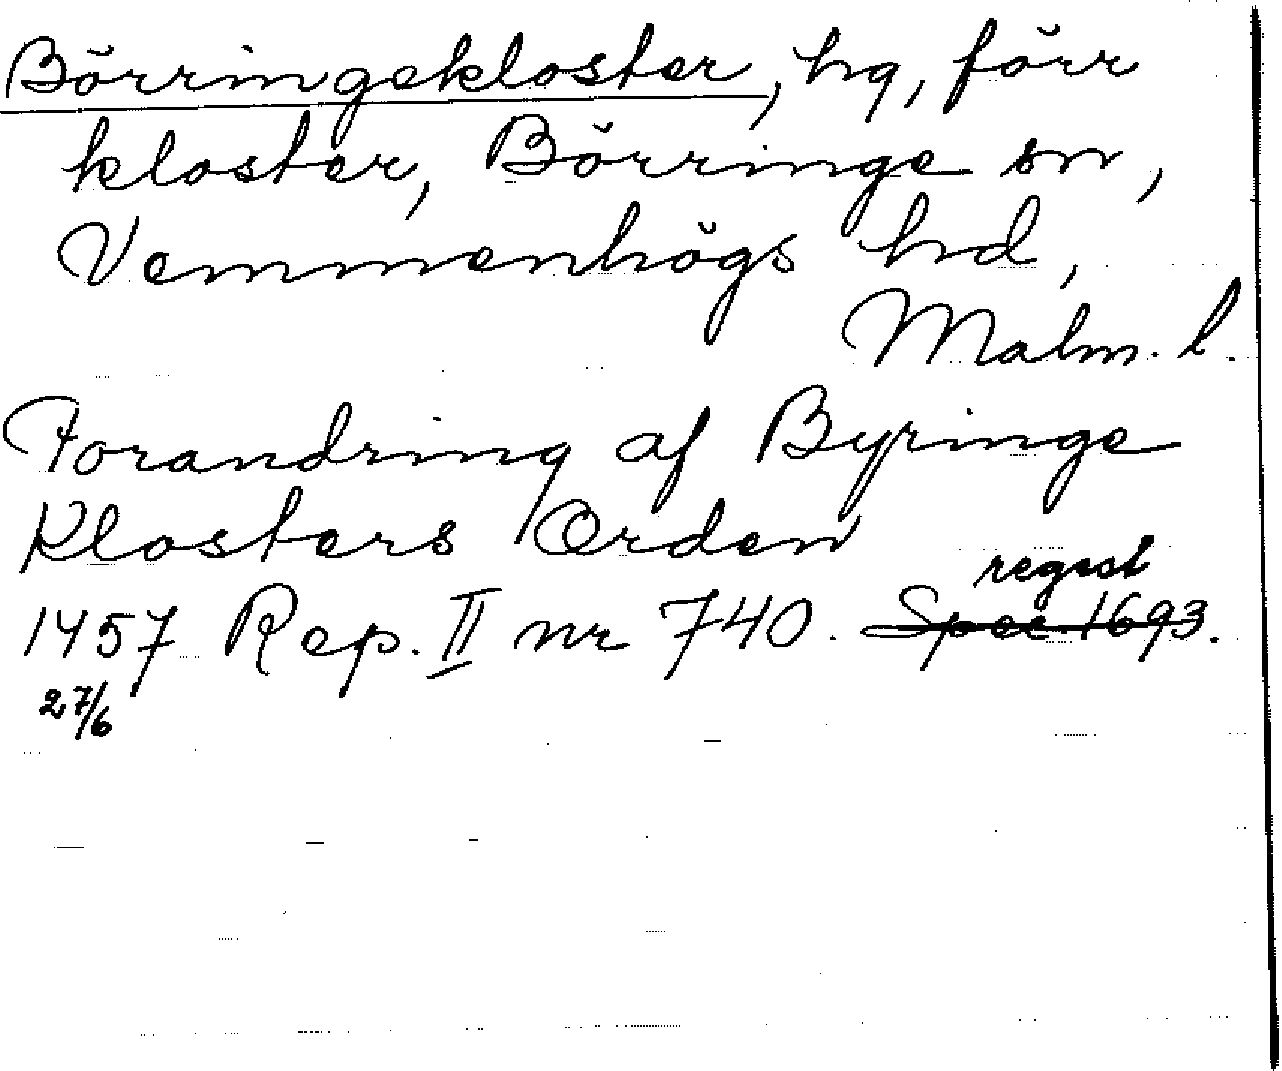 Börringekloster, hg, förr
kloster, Börringe sn,
Vemmenhögs hd,
Malm. l.
Forandring af Byringe
Klosters Orden
regest
1457 Rep. II nr 740. Spec 1693.
27/6